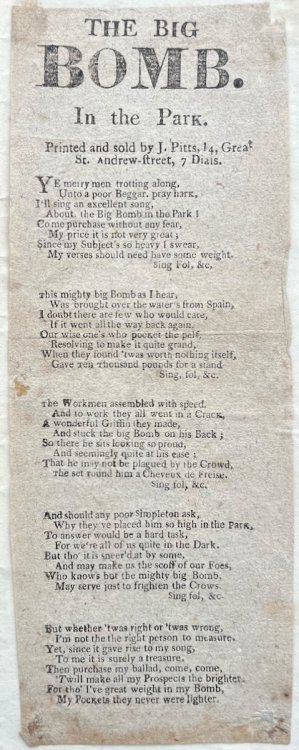 THE BIG
BOMB.
In the Park.
Printed and sold by J. Pitts, 14, Great
St. Andrew-street, 7 Dials.
YE merry men trotting along,
Unto a poor Beggar. pray hark,
I'll sing an excellent song,
About. the Big Bomb in the Park!
Come purchase without any fear,
My price it is not very great;
Since my Subject's so heavy I swear,
My verses should need have some weight.
Sing Fol, &c.
This mighty big Bomb as I hear,
Was brought over the water's from Spain,
I doubt there are few who would care,
If it went all the way back again.
Our wise one's who pocket the pelf,
Resolving to make it quite grand,
When they found 'twas worth nothing itself,
Gave Ten Thousand pounds for a stand
Sing, fol, &c.
The Workmen assembled with speed.
And to work they all went in a Crack,
A wonderful Griffin they made,
And stuck the big Bomb on his Back;
So there he sits looking so proud,
And seemingly quite at his ease;
That he may not be plagued by the Crowd,
The set round him a Cheveux de Freise.
Sing fol, &c.
And should any poor Simpleton ask,
Why they've placed him so high in the Park,
To answer would be a hard task,
For we're all of us quite in the Dark.
But tho' it is sneer'd at by some,
And may make us the scoff of our Foes,
Who knows but the mighty big Bomb,
May serve just to frighten the Crows.
Sing fol, &c.
But whether 'twas right or 'twas wrong,
I'm not the the right person to measure.
Yet, since it gave rise to my song,
To me it is surely a treasure.
Then purchase my ballad, come, come,
'Twill make all my Prospects the brighter.
For tho' I've great weight in my Bomb,
My Pockets they never were lighter.